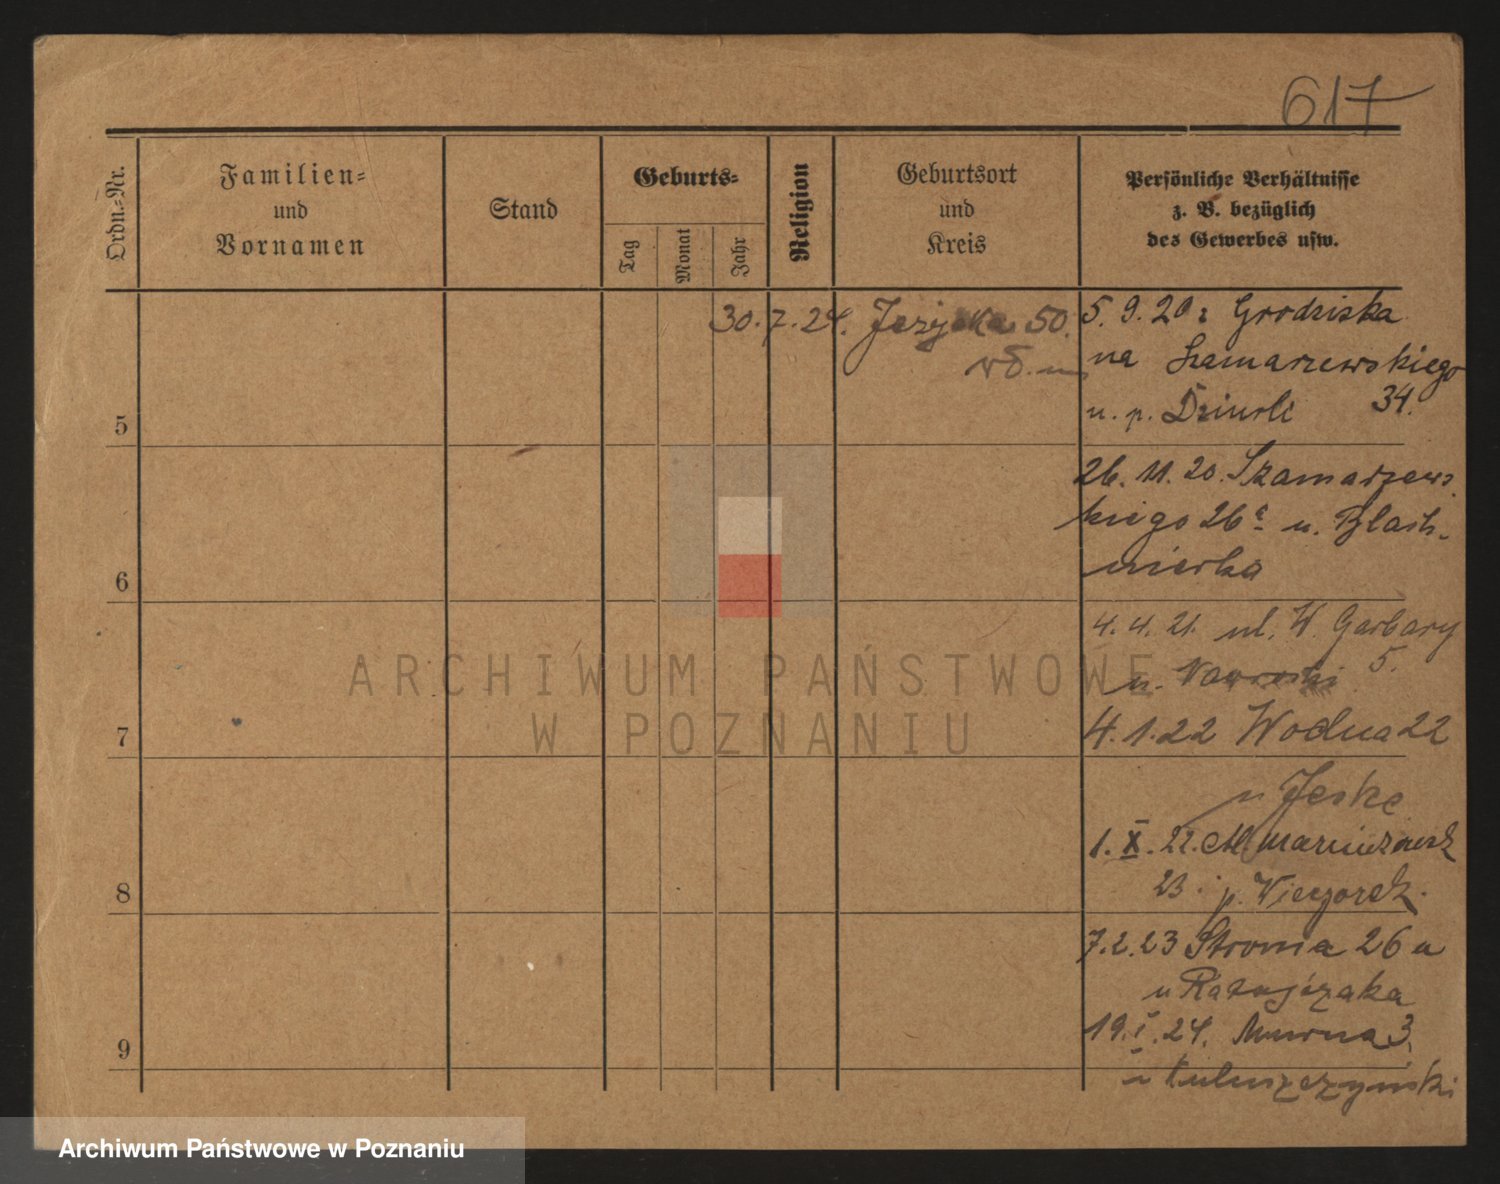 617
Ordn.-Nr.
Familien-
und
Vornamen
Stand
Geburts-
Tag
Monat
Jahr
Religion
Geburtsort
und
Kreis
Persönliche Verhältnisse
z. B. bezüglich
des Gewerbes usw.
30.7.24. Jeżycka 50.
5
5. 9. 20 z Grodziska
na Szamarzewskiego
u. p. 34.
6
26. 11. 20. Szamarzews
kiego 26a u. Blach-
nierka
7
4. 4. 21. ul. W. Garbary
u. Nawrocki 5.
4.1.22 Wodna 22
8
u Jeske
1. X. 22. M.
23. p. Wieczorek.
9
7.2.23 Stroma 26 a
u Ratajczaka
19.I.24. Murna 3.
ARCHIWUM PAŃSTWOWE
W POZNANIU
Archiwum Państwowe w Poznaniu